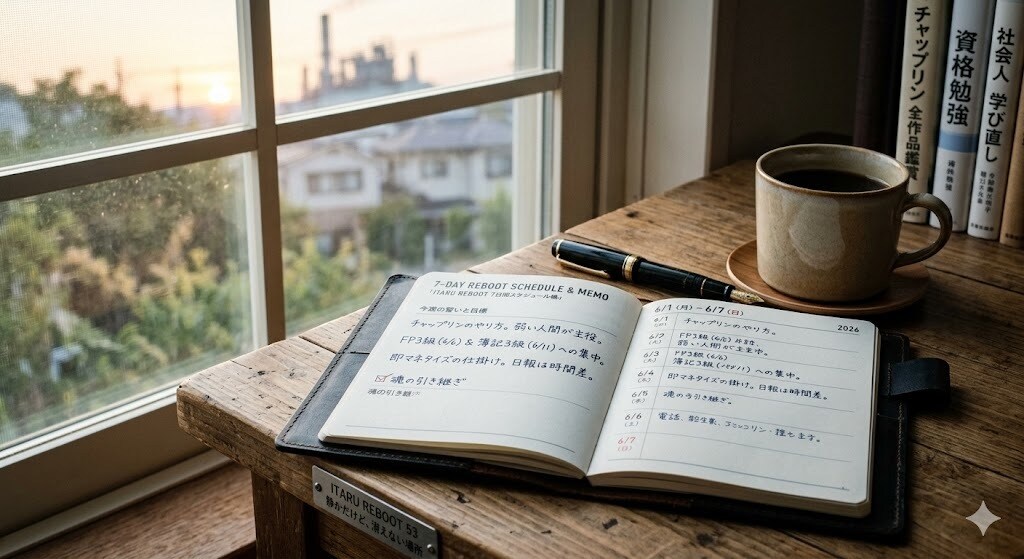 チャップリン 全作品鑑賞
資格勉強
社会人 学び直し
7-DAY REBOOT SCHEDULE & MEMO
「ITARU REBOOT 7日間スケジュール帳」
今週の誓いと目標
チャップリンのやり方。弱い人間が主役。
FP3級 (6/6) & 簿記3級 (6/11) への集中。
即マネタイズの仕掛け。日報は時間差。
魂の引き継ぎ
魂の引き継
6/1 (月) – 6/7 (日)
2026
6/1 チャップリンのやり方。
6/2 FP3級
(火) 弱い人間が
6/3 FP3級 (6/6)
(水) 簿記3級 への集中。
6/4 即マネタイズの掛け。日報は時間差。
(木)
6/5 魂の引き継ぎ。
6/6 電話、
(土)
6/7
(日)
ITARU REBOOT 53
静かだけど、消えない場所